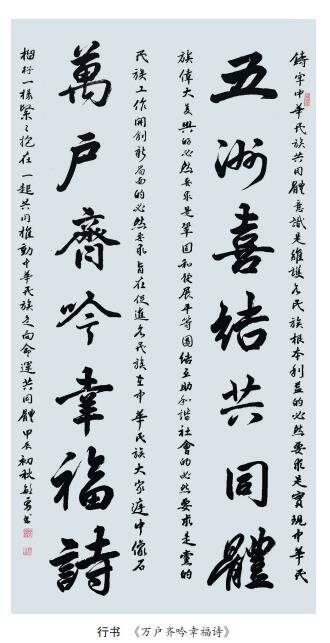 鑄牢中華民族共同體意識是維護各民族根本利益的必然要求是實現中華民
五洲喜結共同體
族偉大復興的必然要求是鞏固和發展平等團結互助和諧社會的必然要求是黨的
民族工作開創新局面的必然要求旨在促進各民族在中華民族大家庭中像石
萬戶齊吟幸福詩
榴籽一樣緊緊抱在一起共同推動中華民族走向命運共同體甲辰初秋
行书 《万户齐吟幸福诗》